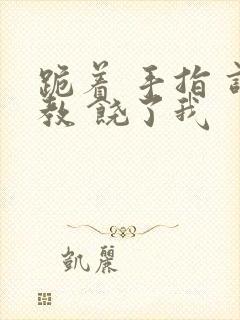 跪着 手指 
教 饶了我
凯麗